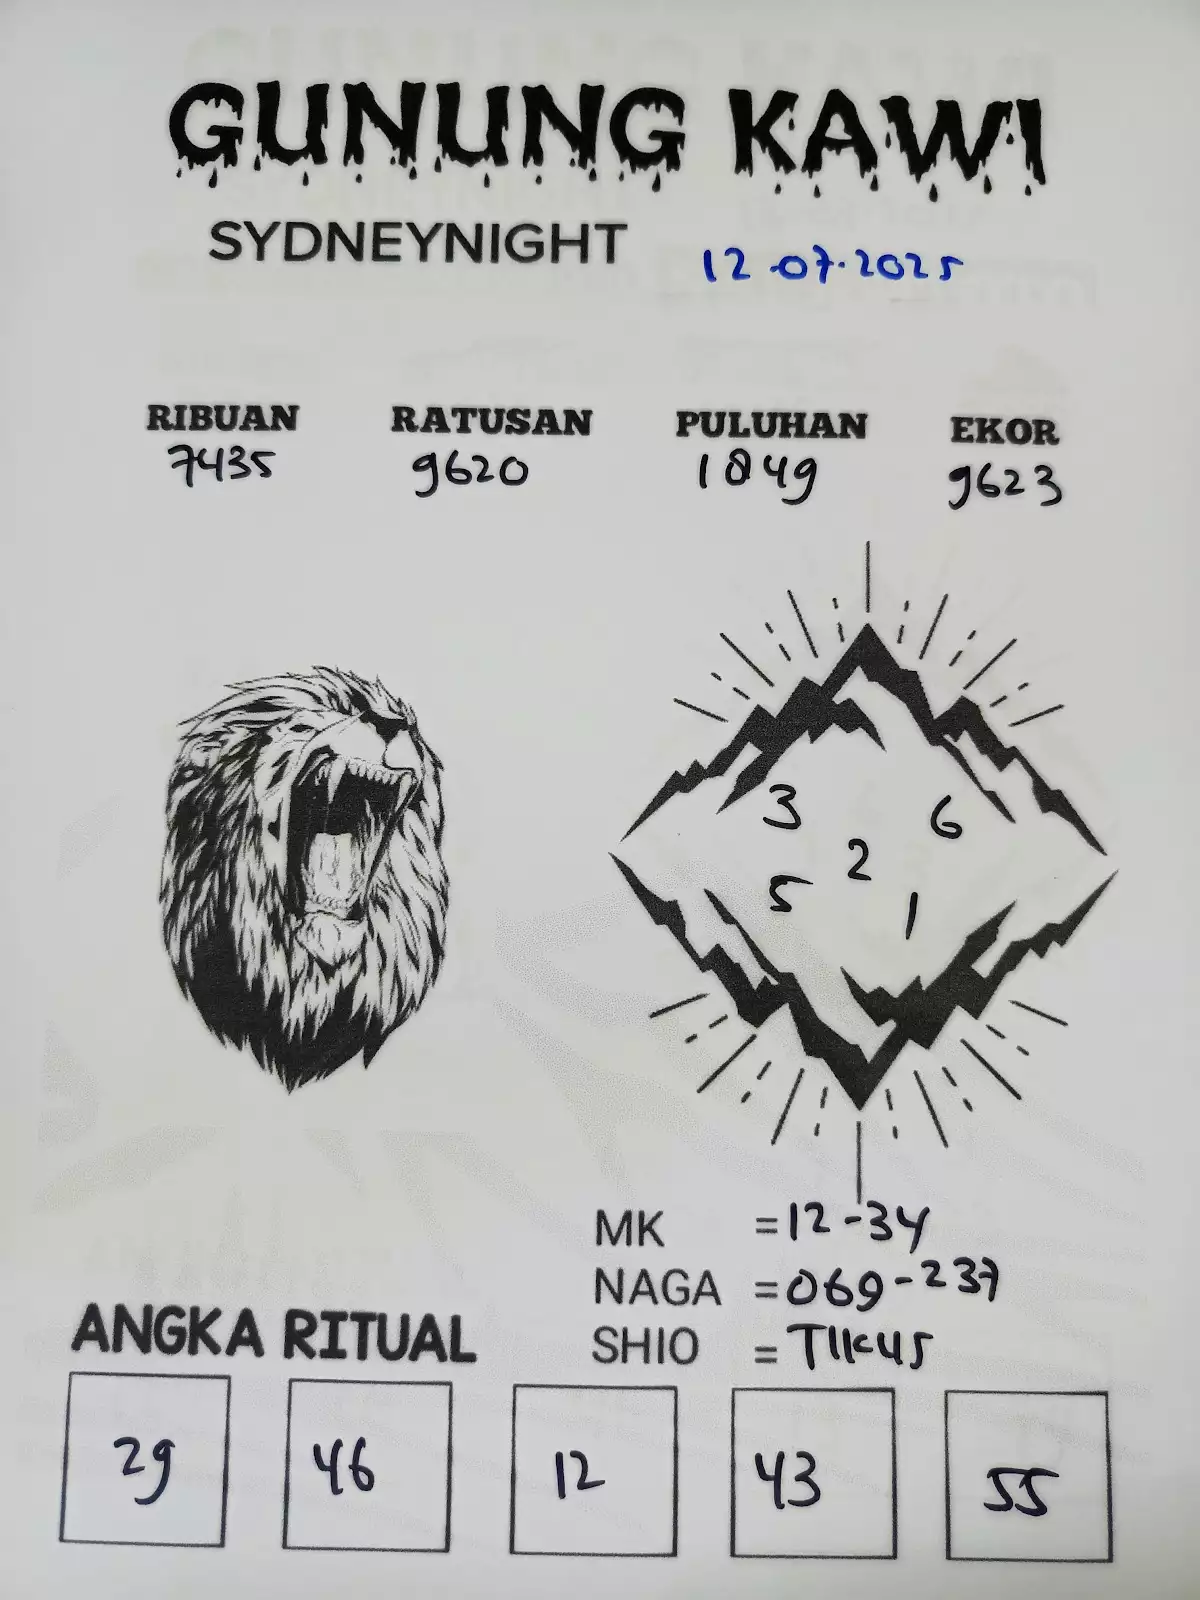 GUNUNG KAWI
SYDNEYNIGHT 12.07.2025
RIBUAN RATUSAN PULUHAN EKOR
7435 9620 1849 9623
3 6
2
5 1
MK = 12-34
NAGA = 069-237
SHIO = TIKUS
ANGKA RITUAL
29 46 12 43 55